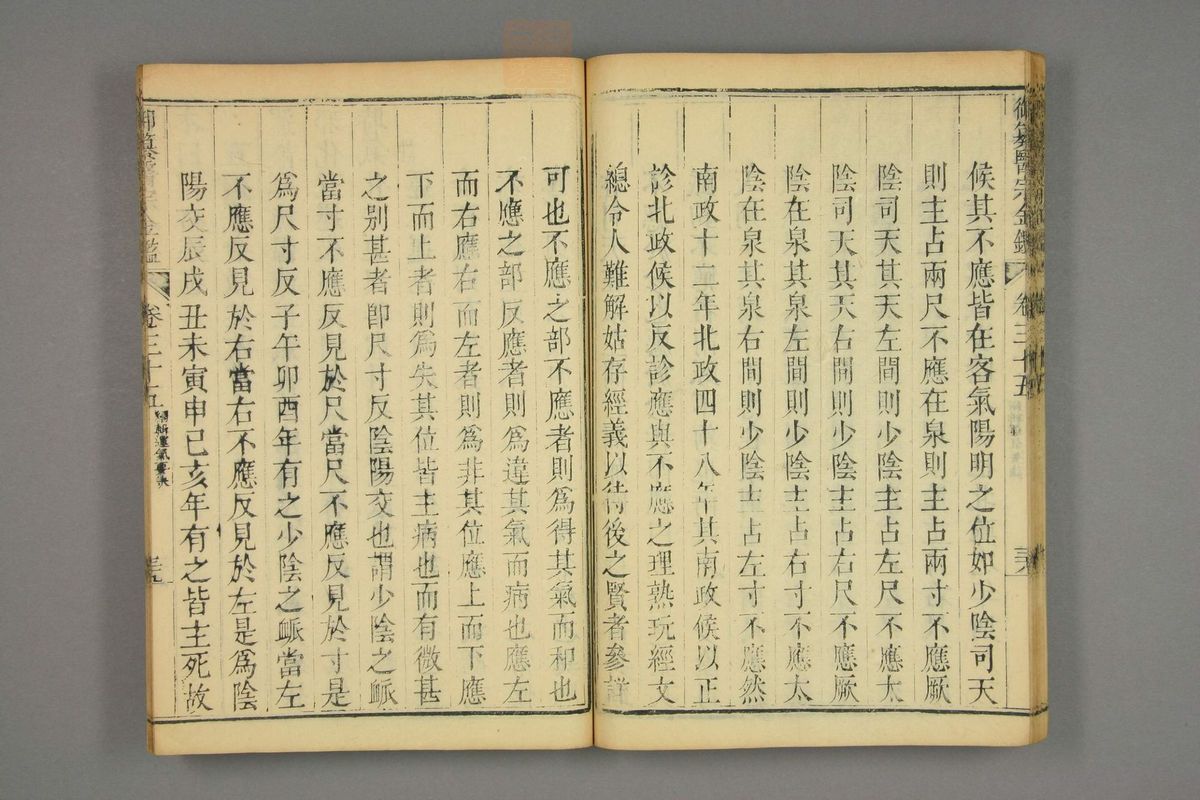 御纂醫宗金鑑 卷三十五
候其不應皆在客氣陽明之位如少陰司天
則主占兩尺不應在泉則主占兩寸不應厥
陰司天其天左間則少陰主占左尺不應太
陰司天其天右間則少陰主占右尺不應厥
陰在泉其泉左間則少陰主占右寸不應太
陰在泉其泉右間則少陰主占左寸不應然
南政十二年北政四十八年其南政候以正
診北政候以反診應與不應之理熟玩經文
總令人難解姑存經義以待後之賢者參詳
可也不應之部不應者則爲得其氣而和也
不應之部反應者則爲違其氣而病也應左
而右應右而左者則爲非其位應上而下應
下而上者則爲失其位皆主病也而有微甚
之别甚者卽尺寸反陰陽交也謂少陰之脈
當寸不應反見於尺當尺不應反見於寸是
爲尺寸反子午卯酉年有之少陰之脈當左
不應反見於右當右不應反見於左是爲陰
陽交辰戌丑未寅申巳亥年有之皆主死故
御纂醫宗金鑑 卷三十五 編輯運氣要訣